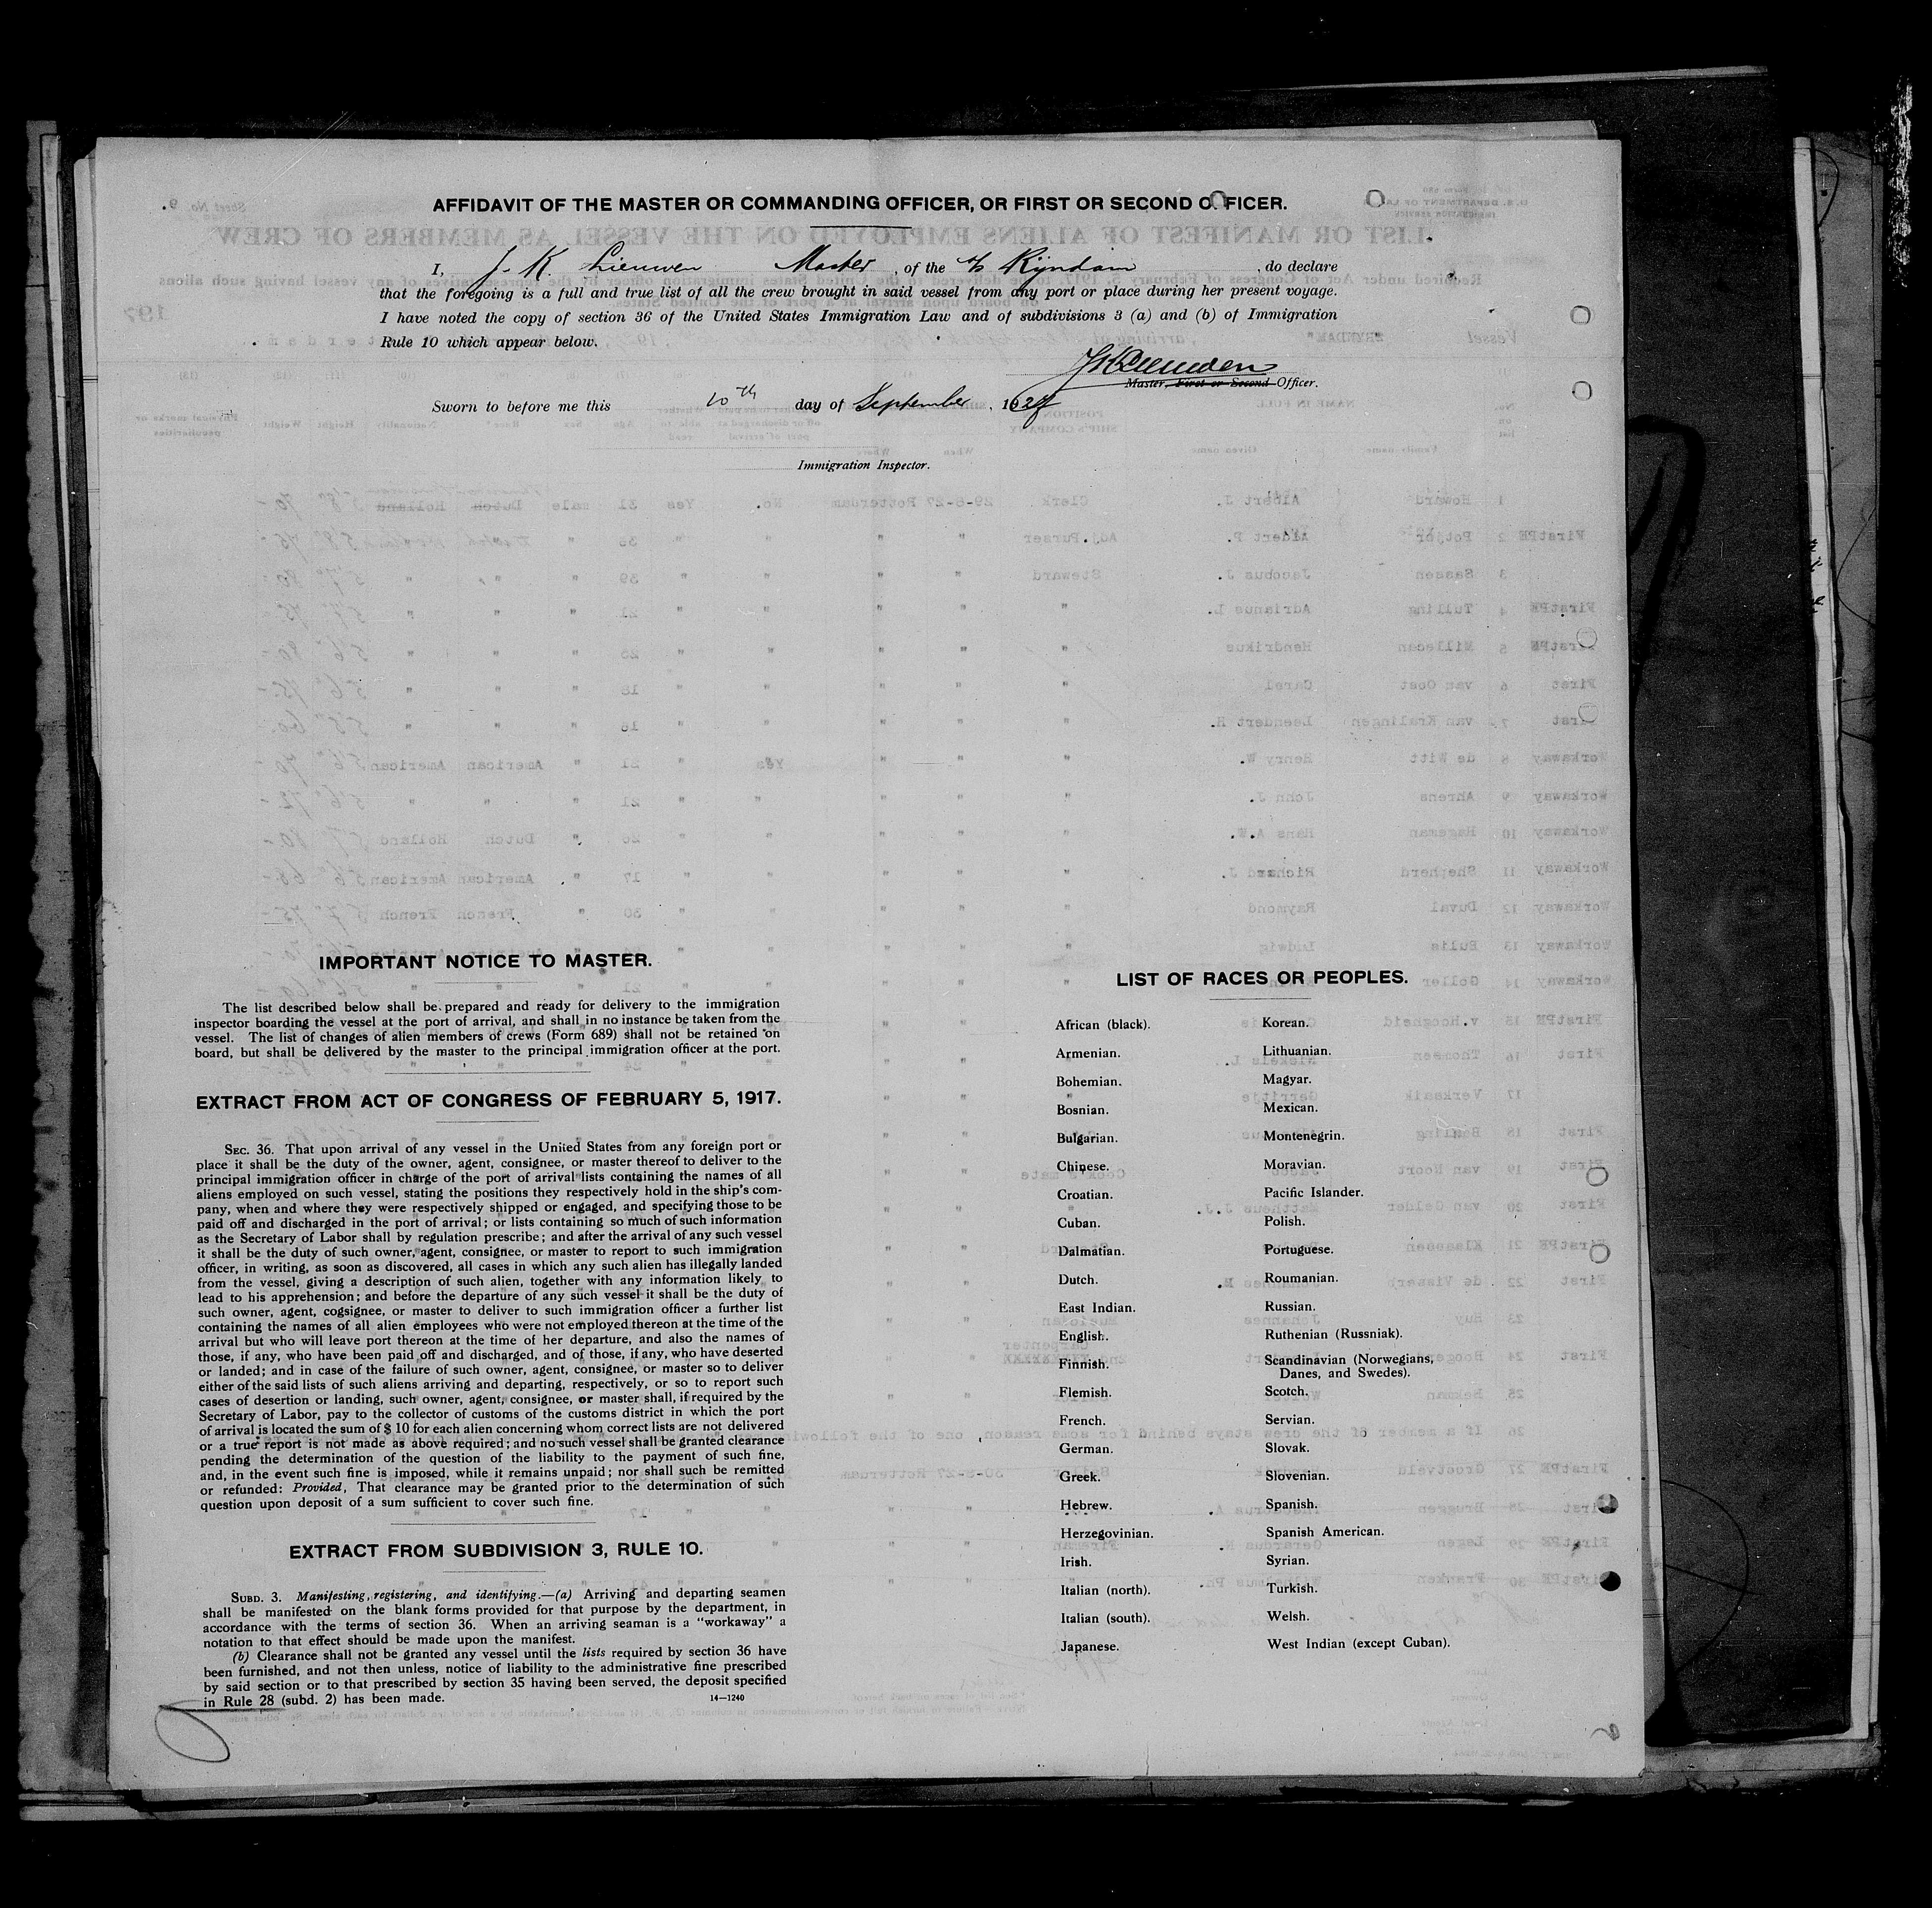 AFFIDAVIT OF THE MASTER OR COMMANDING OFFICER, OR FIRST OR SECOND OFFICER.
I, J. K. Lieuwen Master, of the s/s Rijndam, do declare
that the foregoing is a full and true list of all the crew brought in said vessel from any port or place during her present voyage.
I have noted the copy of section 36 of the United States Immigration Law and of subdivisions 3 (a) and (b) of Immigration
Rule 10 which appear below.
Master, First or Second Officer.
Sworn to before me this 10th day of September, 1927
Immigration Inspector.
IMPORTANT NOTICE TO MASTER.
The list described below shall be prepared and ready for delivery to the immigration
inspector boarding the vessel at the port of arrival, and shall in no instance be taken from the
vessel. The list of changes of alien members of crews (Form 689) shall not be retained on
board, but shall be delivered by the master to the principal immigration officer at the port.
EXTRACT FROM ACT OF CONGRESS OF FEBRUARY 5, 1917.
SEC. 36. That upon arrival of any vessel in the United States from any foreign port or
place it shall be the duty of the owner, agent, consignee, or master thereof to deliver to the
principal immigration officer in charge of the port of arrival lists containing the names of all
aliens employed on such vessel, stating the positions they respectively hold in the ship's com-
pany, when and where they were respectively shipped or engaged, and specifying those to be
paid off and discharged in the port of arrival; or lists containing so much of such information
as the Secretary of Labor shall by regulation prescribe; and after the arrival of any such vessel
it shall be the duty of such owner, agent, consignee, or master to report to such immigration
officer, in writing, as soon as discovered, all cases in which any such alien has illegally landed
from the vessel, giving a description of such alien, together with any information likely to
lead to his apprehension; and before the departure of any such vessel it shall be the duty of
such owner, agent, cogsignee, or master to deliver to such immigration officer a further list
containing the names of all alien employees who were not employed thereon at the time of the
arrival but who will leave port thereon at the time of her departure, and also the names of
those, if any, who have been paid off and discharged, and of those, if any, who have deserted
or landed; and in case of the failure of such owner, agent, consignee, or master so to deliver
either of the said lists of such aliens arriving and departing, respectively, or so to report such
cases of desertion or landing, such owner, agent, consignee, or master shall, if required by the
Secretary of Labor, pay to the collector of customs of the customs district in which the port
of arrival is located the sum of $ 10 for each alien concerning whom correct lists are not delivered
or a true report is not made as above required; and no such vessel shall be granted clearance
pending the determination of the question of the liability to the payment of such fine,
and, in the event such fine is imposed, while it remains unpaid; nor shall such be remitted
or refunded: Provided, That clearance may be granted prior to the determination of such
question upon deposit of a sum sufficient to cover such fine.
EXTRACT FROM SUBDIVISION 3, RULE 10.
SUBD. 3. Manifesting, registering, and identifying.—(a) Arriving and departing seamen
shall be manifested on the blank forms provided for that purpose by the department, in
accordance with the terms of section 36. When an arriving seaman is a "workaway" a
notation to that effect should be made upon the manifest.
(b) Clearance shall not be granted any vessel until the lists required by section 36 have
been furnished, and not then unless, notice of liability to the administrative fine prescribed
by said section or to that prescribed by section 35 having been served, the deposit specified
in Rule 28 (subd. 2) has been made.
14—1240
LIST OF RACES OR PEOPLES.
African (black).
Armenian.
Bohemian.
Bosnian.
Bulgarian.
Chinese.
Croatian.
Cuban.
Dalmatian.
Dutch.
East Indian.
English.
Finnish.
Flemish.
French.
German.
Greek.
Hebrew.
Herzegovinian.
Irish.
Italian (north).
Italian (south).
Japanese.
Korean.
Lithuanian.
Magyar.
Mexican.
Montenegrin.
Moravian.
Pacific Islander.
Polish.
Portuguese.
Roumanian.
Russian.
Ruthenian (Russniak).
Scandinavian (Norwegians,
Danes, and Swedes).
Scotch.
Servian.
Slovak.
Slovenian.
Spanish.
Spanish American.
Syrian.
Turkish.
Welsh.
West Indian (except Cuban).